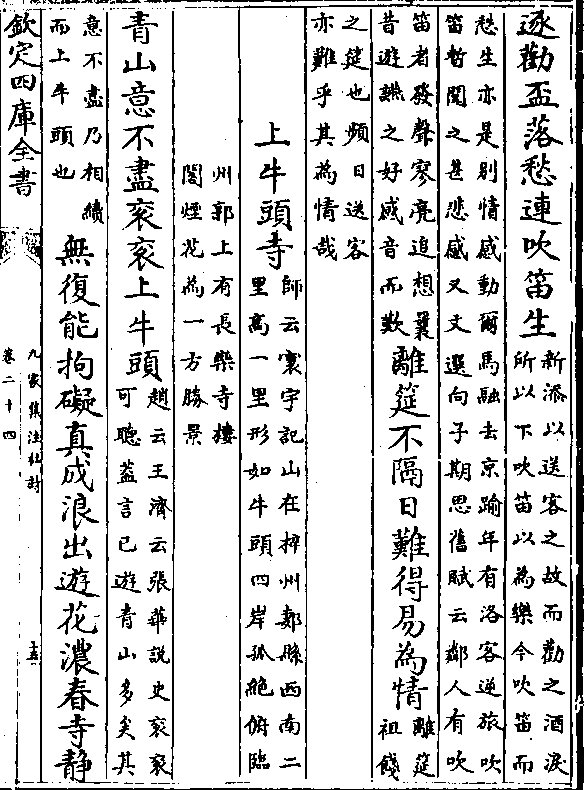 逐勸盃落愁連吹笛生
新添以送客之故而勸之酒淚
所以下吹笛以為樂今吹笛而
愁生亦是別情感動爾馬融去京踰年有洛客逆旅吹
笛暫聞之甚悲感又文選向子期思舊賦云鄰人有吹
笛者發聲寥亮追想曩
昔遊讌之好感音而歎
離筵不隔日難得易為情
離筵
祖餞
之筵也頻日送客
亦難乎其為情哉
上牛頭寺
師云寰宇記山在梓州郪縣西南二
里高一里形如牛頭四岸孤絶俯臨
州郭上有長樂寺樓
閣煙花為一方勝景
青山意不盡衮衮上牛頭
趙云王濟云張華説史衮衮
可聽葢言已遊青山多矣其
意不盡乃相續
而上牛頭也
無復能拘礙真成浪出遊花濃春寺静
欽定四庫全書
九家集注杜詩
卷二十四
十五